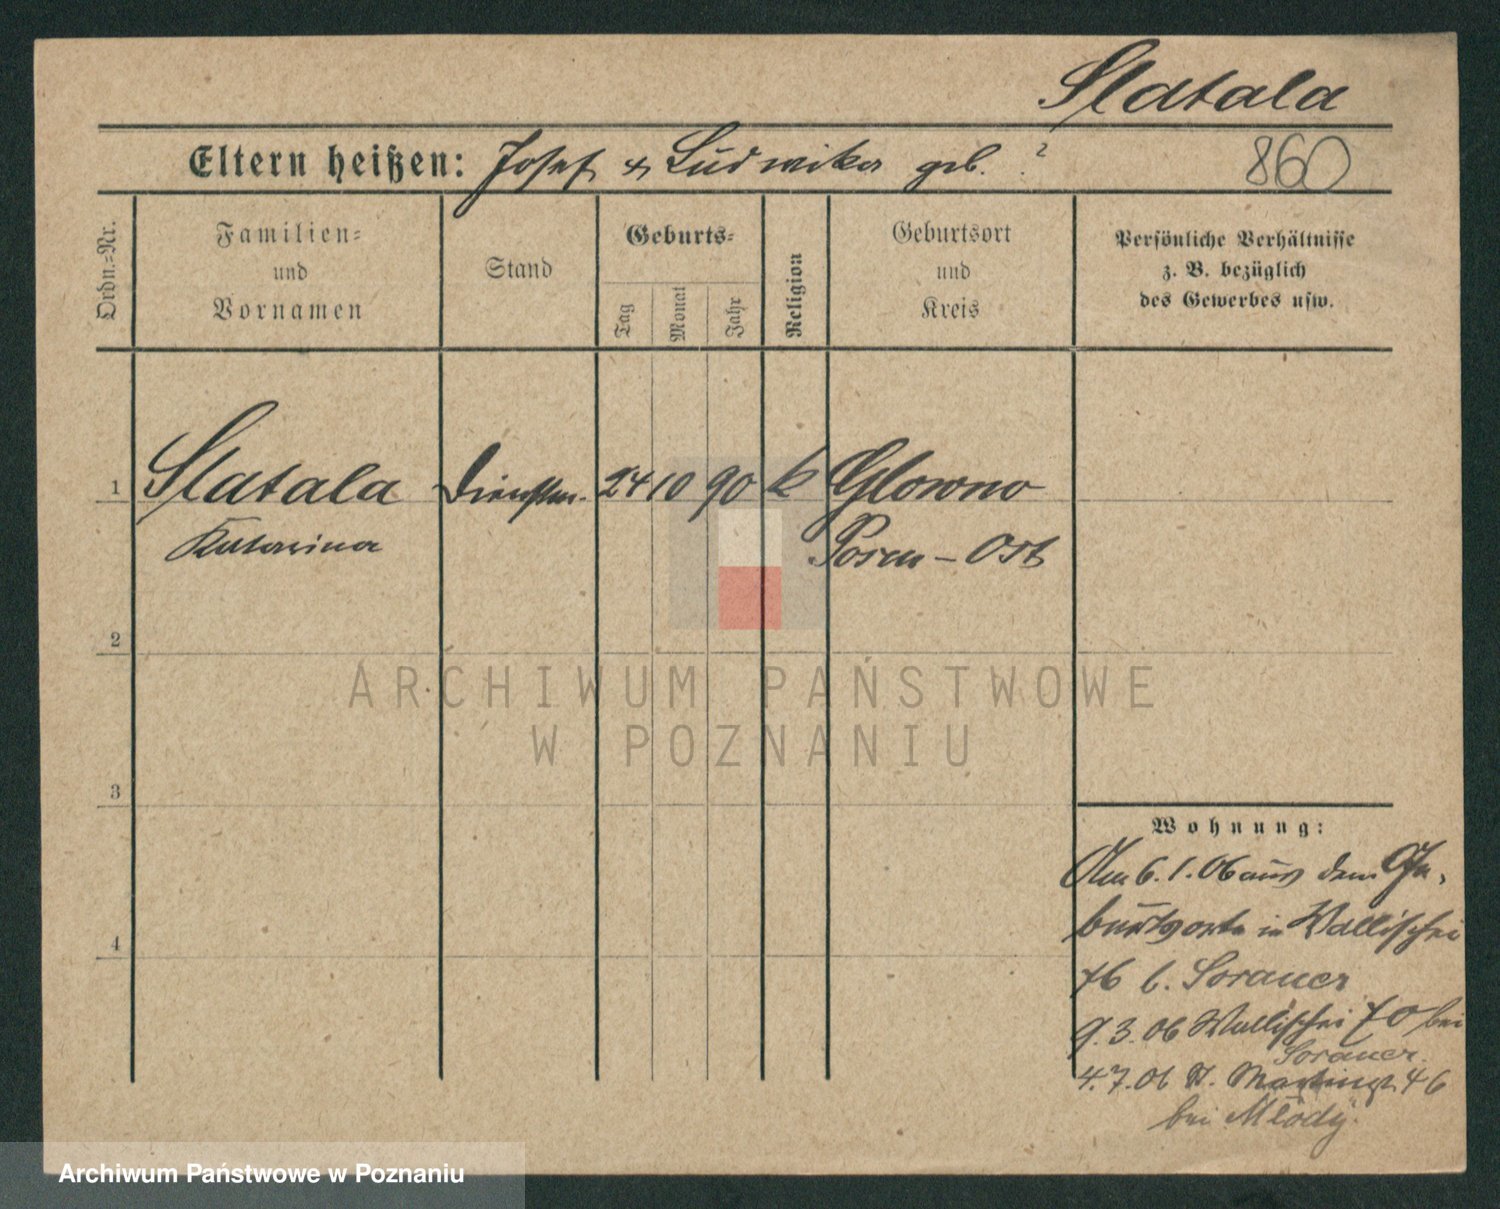 Slatala
Eltern heißen: Josef & Ludwika geb. ?
860
Ordn.=Nr.
Familien=
und
Vornamen
Stand
Geburts=
Tag
Monat
Jahr
Religion
Geburtsort
und
Kreis
Persönliche Verhältnisse
z. B. bezüglich
des Gewerbes usw.
1 Slatala Dienstm. 24 10 90 k Glowno
Katarina Posen - Ost
2
3
4
Wohnung:
Am 6.1.06 aus dem Ge-
burtsorte in Wallischei
76 b. Sorauer
9.3.06 Wallischei 70 bei
Sorauer.
4.7.06 St. Martinstr. 46
bei Mlody.
ARCHIWUM PAŃSTWOWE
W POZNANIU
Archiwum Państwowe w Poznaniu